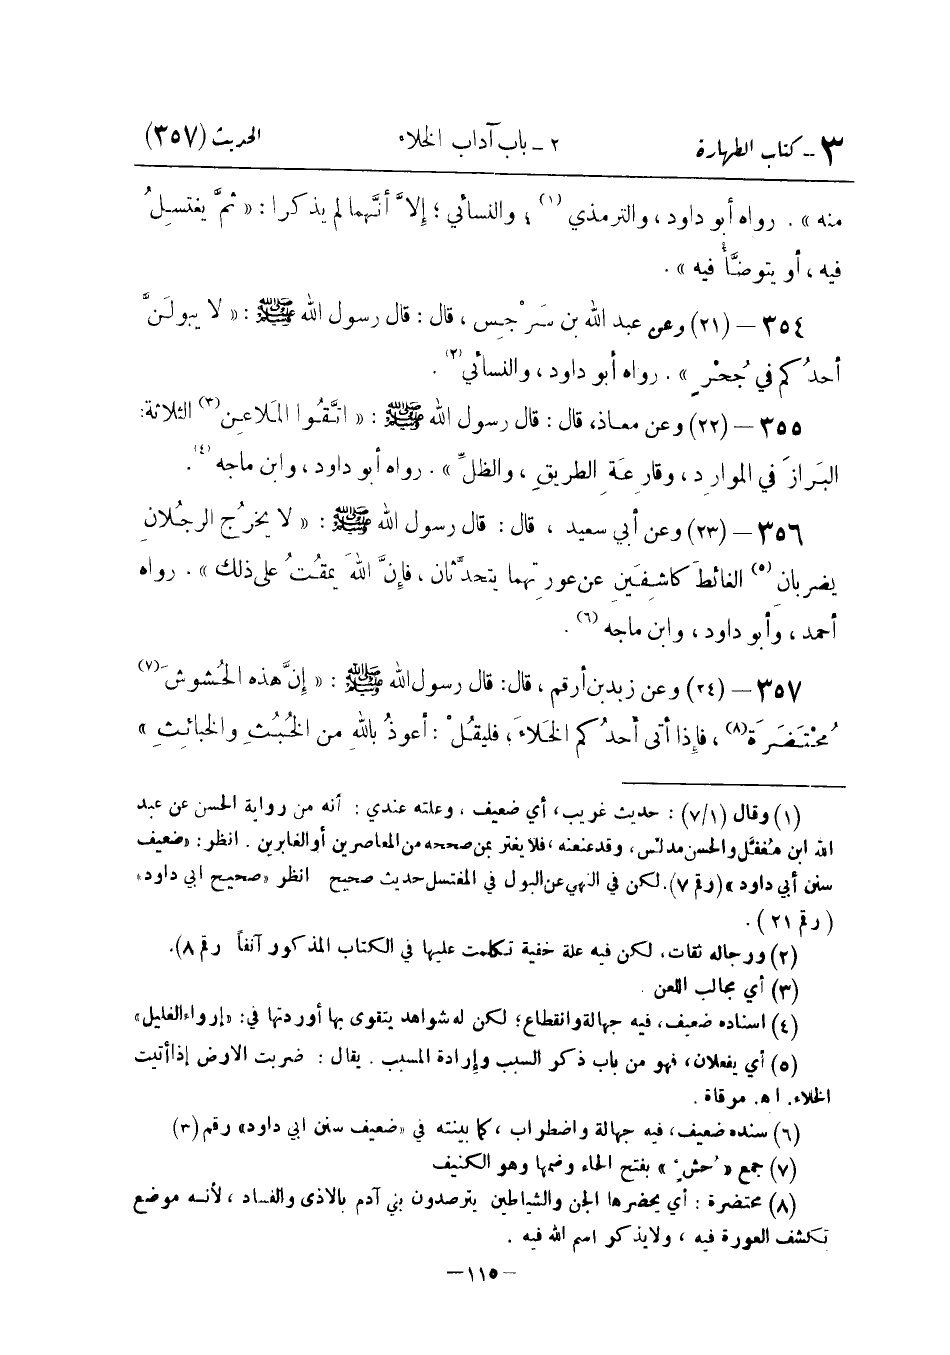 ٣ - كتاب الطهارة ٢ - باب آداب الخلاء الحديث (٣٥٧)
منه » . رواه أبو داود ، والترمذي (١) ؛ والنسائي ؛ إلاَّ أنَّهما لم يذكرا : « ثمَّ يغتسلُ
فيه ، أو يتوضَّأُ فيه » .
٣٥٤ – (٢١) وعن عبد الله بن سَرْجِس ، قال : قال رسول الله ﷺ : « لا يبولَنَّ
أحدُكم في جُحْرٍ » . رواه أبو داود ، والنسائي (٢) .
٣٥٥ – (٢٢) وعن معاذ، قال : قال رسول الله ﷺ : « اتَّقُوا المَلاعِنَ (٣) الثلاثة:
البَرازَ في المواردِ ، وقارِعَةِ الطريقِ ، والظلِّ » . رواه أبو داود ، وابن ماجه (٤) .
٣٥٦ – (٢٣) وعن أبي سعيد ، قال : قال رسول الله ﷺ : « لا يخرُجِ الرجُلانِ
يضربانِ (٥) الغائطَ كاشفَينِ عن عورتهما يتحدَّثانِ ، فإنَّ اللهَ يمقُتُ على ذلك » . رواه
أحمد ، وأبو داود ، وابن ماجه (٦) .
٣٥٧ – (٢٤) وعن زيد بن أرقم ، قال: قال رسول الله ﷺ : « إنَّ هذه الحُشوشَ (٧)
مُحْتَضَرَة (٨) ، فإذا أتى أحدُكم الخَلاءَ ، فليقُلْ : أعوذُ باللهِ من الخُبُثِ والخبائثِ »
(١) وقال (١/٧) : حديث غريب، أي ضعيف ، وعلته عندي : أنه من رواية الحسن عن عبد
الله ابن مُغفَّل والحسن مدلّس، وقد عنعنه ، فلا يغتر بمن صححه من المعاصرين أو الغابرين . انظر : «ضعيف
سنن أبي داود » (رقم ٧). لكن في النهي عن البول في المغتسل حديث صحيح انظر «صحيح ابي داود»
( رقم ٢١ ) .
(٢) ورجاله ثقات، لكن فيه علة خفية تكلمت عليها في الكتاب المذكور آنفاً رقم ٨).
(٣) أي مجالب اللعن .
(٤) اسناده ضعيف، فيه جهالة وانقطاع؛ لكن له شواهد يتقوى بها أوردتها في: «إرواء الغليل»
(٥) أي يفعلان، فهو من باب ذكر السبب وإرادة المسبب . يقال : ضربت الارض إذا أتيت
الخلاء. اهـ. مرقاة .
(٦) سنده ضعيف، فيه جهالة واضطراب ، كما بينته في «ضعيف سنن ابي داود» رقم (٣)
(٧) جمع « حُش » بفتح الحاء وضمها وهو الكنيف
(٨) محتضرة : أي يحضرها الجن والشياطين يترصدون بني آدم بالاذى والفساد ، لأنه موضع
تكشف العورة فيه ، ولا يذكر اسم الله فيه .
– ١١٥ –